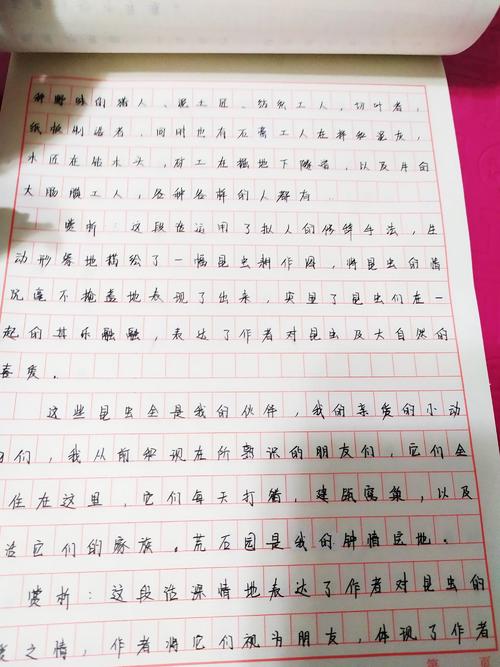 种野味的猎人、泥土匠、纺织工人，切叶者，
纸板制造者，同时也有石膏工人在拌和泥灰，
木匠在钻木头，矿工在掘地下隧道，以及牛的
大肠膜工人，各种各样的人都有
赏析：这段话运用了拟人的修辞手法，生
动形象地描绘了一幅昆虫耕作图，将昆虫的
不掩盖地表现了出来，突显了昆虫们在一
起的其乐融融，表达了作者对昆虫及大自然的
喜爱．
这些昆虫全是我的伙伴，我的亲爱的小动
们，我从前和现在所熟识的朋友们，它们全
住在这里，它们每天打猎，建筑窝巢，以及
它们的家族．荒石园是我的钟情宝地．
赏析：这段话深情地表达了作者对昆虫的
爱之情，作者将它们视为朋友，体现了作者
第 页